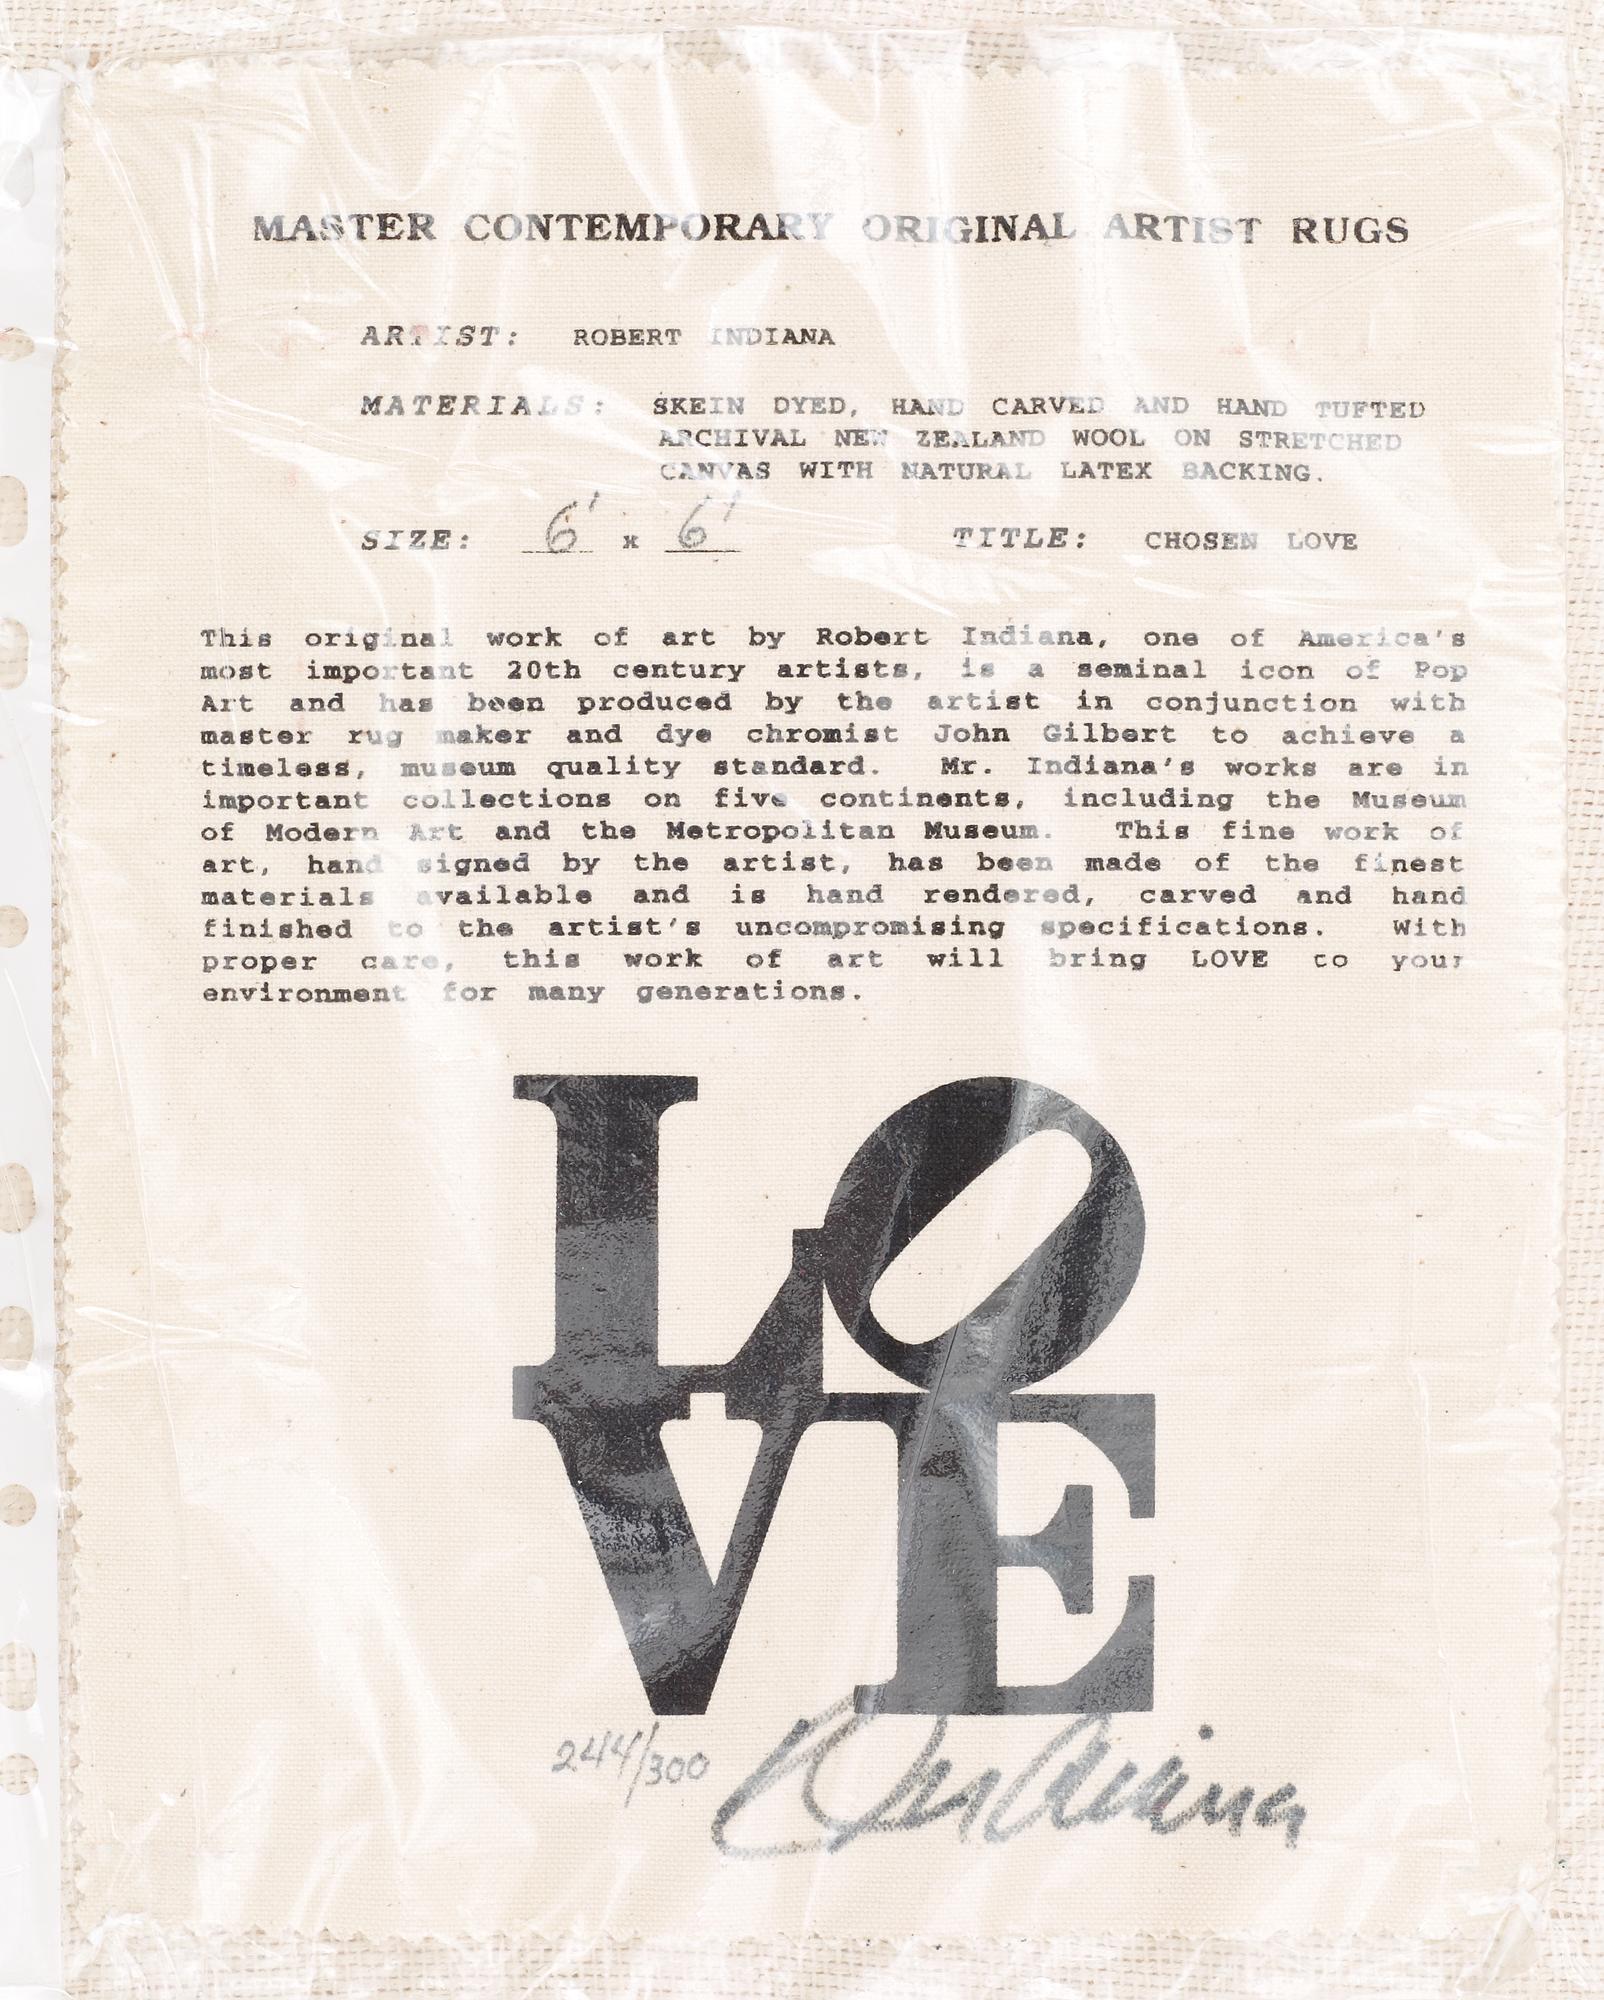 MASTER CONTEMPORARY ORIGINAL ARTIST RUGS
ARTIST: ROBERT INDIANA
MATERIALS: SKEIN DYED, HAND CARVED AND HAND TUFTED
ARCHIVAL NEW ZEALAND WOOL ON STRETCHED
CANVAS WITH NATURAL LATEX BACKING.
SIZE: 6' x 6' TITLE: CHOSEN LOVE
This original work of art by Robert Indiana, one of America's
most important 20th century artists, is a seminal icon of Pop
Art and has been produced by the artist in conjunction with
master rug maker and dye chromist John Gilbert to achieve a
timeless, museum quality standard. Mr. Indiana's works are in
important collections on five continents, including the Museum
of Modern Art and the Metropolitan Museum. This fine work of
art, hand signed by the artist, has been made of the finest
materials available and is hand rendered, carved and hand
finished to the artist's uncompromising specifications. With
proper care, this work of art will bring LOVE to your
environment for many generations.
LO
VE
244/300 Indiana